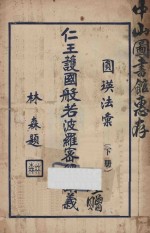 中山圖書館惠存
圓瑛法彙(下冊)
仁王護國般若波羅密經講義
林森題
贈